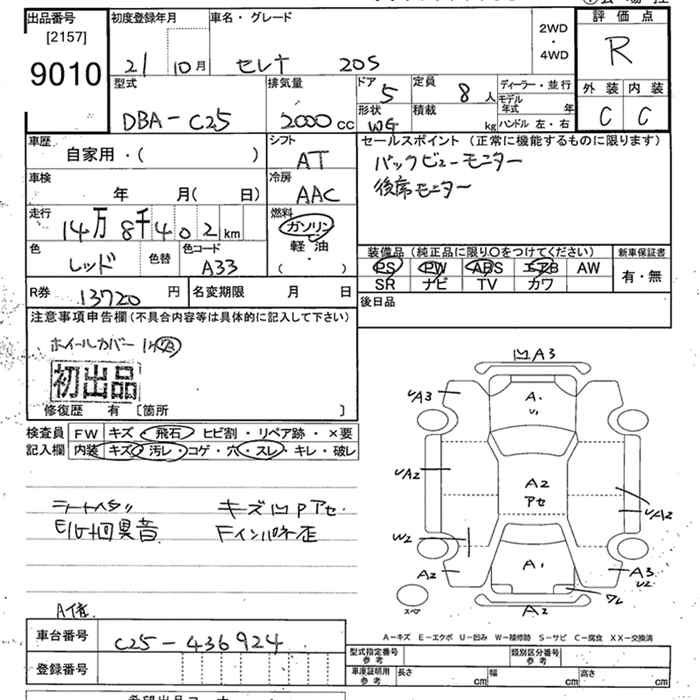 出品番号
[2157]
9010
初度登録年月
21 10月
車名・グレード
セレナ 20S
2WD
・
4WD
評価点
R
外装 内装
C C
型式
DBA-C25
排気量
2000 CC
ドア
5
定員
8 人
形状
WG
積載
kg
ディーラー・並行
モデル年式 年
ハンドル 左・右
車歴
自家用・( )
シフト
AT
車検
年 月( 日)
冷房
AAC
走行
14万8千402km
燃料
ガソリン
軽油
( ・ )
色
レッド
色替
色コード
A33
セールスポイント (正常に機能するものに限ります)
バックビューモニター
後席モニター
装備品 (純正品に限り○をつけてください)
PS PW ABS エアB AW
SR ナビ TV カワ
新車保証書
有・無
R券 13720円
名変期限 月 日
後日品
注意事項申告欄(不具合内容等は具体的に記入して下さい)
ホイールカバー
初出品
修復歴 有 [箇所 ]
検査員
記入欄
FW キズ・飛石・ヒビ割・リペア跡・×要
内装 キズ・汚レ・コゲ・穴・スレ・キレ・破レ
シートヘタリ キズ凹Pアセ
E/G 異音 Fインパネ歪
A3
A3
A.
U2
A2
アセ
UA2
W2
A2
A1
A3
U2
A2
スペア
車台番号
C25-436924
登録番号
A－キズ E－エクボ U－凹み W－補修跡 S－サビ C－腐食 XX－交換済
型式指定番号
参考
類別区分番号
参考
車庫証明用
参考
長さ cm 幅 cm 高さ cm